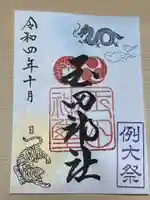 例大祭
玉田神社
令和四年十月 日